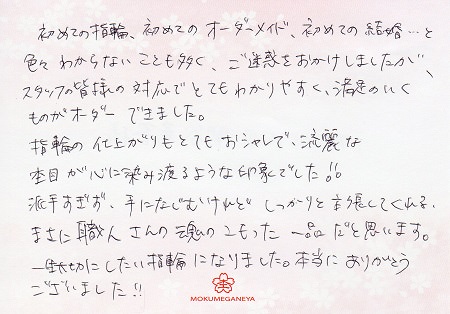 初めての指輪、初めてのオーダーメイド、初めての結婚…と
色々わからないことも多く、ご迷惑をおかけしましたが、
スタッフの皆様の対応でとてもわかりやすく、満足のいく
ものがオーダーできました。
指輪の仕上がりもとてもオシャレで、流麗な
杢目が心に染み渡るような印象でした!!
派手すぎず、手になじむけれどしっかりと主張してくれる、
まさに職人さんの魂のこもった一品だと思います。
一生大切にしたい指輪になりました。本当にありがとう
ございました!!
MOKUMEGANEYA